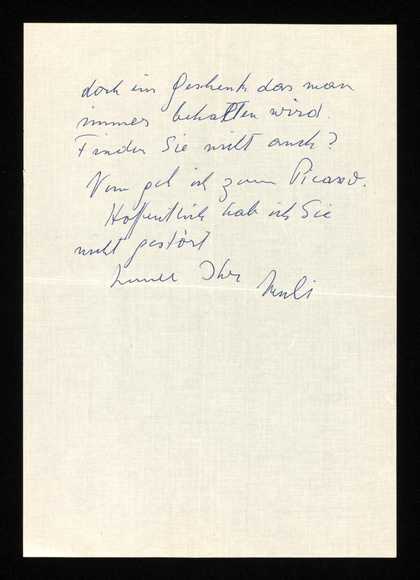 doch ein Geschenk das man
immer behalten wird.
Finden Sie nicht auch?
Nun geh ich zum Picasso.
Hoffentlich hab ich Sie
nicht gestört
Immer Ihr